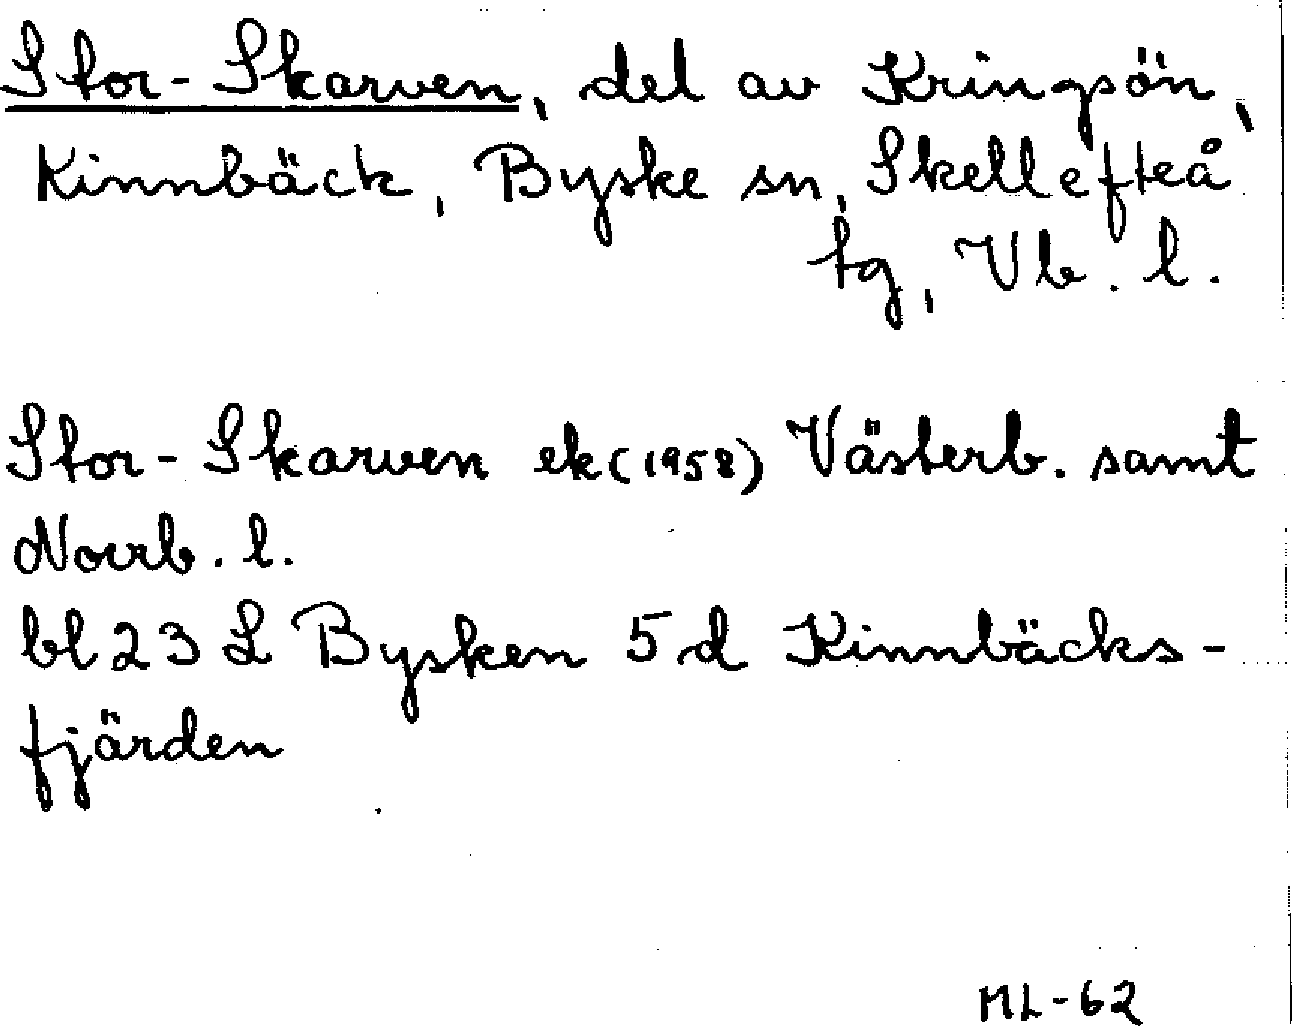 Stor-Skarven, del av Kringsön,
Kinnbäck, Byske sn, Skellefteå
tg, Vb. l.
Stor-Skarven ek (1958) Västerb. samt
Norrb. l.
bl 23 L Bysken 5 d Kinnbäcks-
fjärden
ML-62